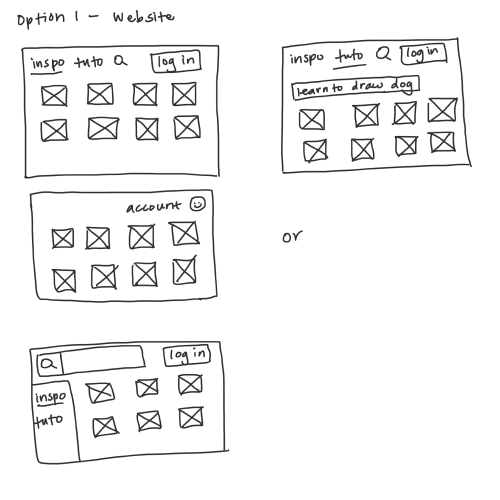 Option 1 - Website
inspo tuto log in
inspo tuto log in
learn to draw dog
account
or
log in
inspo
tuto